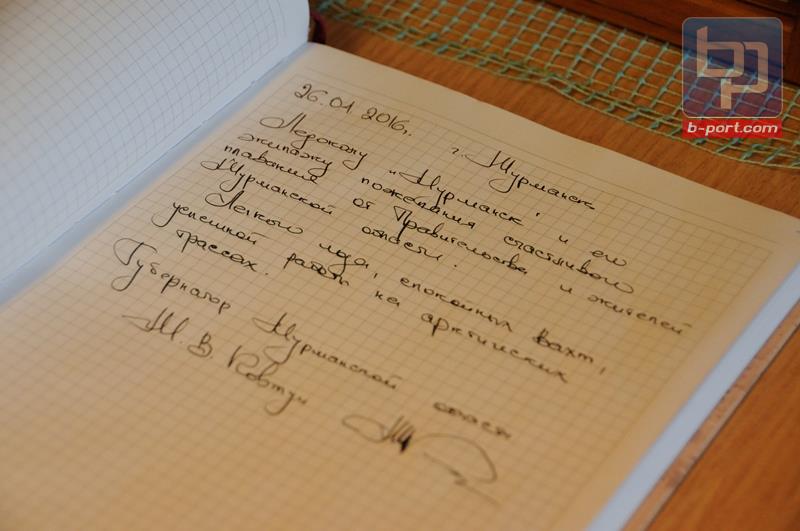 26.01.2016г. г. Мурманск
Ледоколу „Мурманск" и его
экипажу пожелания счастливого
плавания от Правительства и жителей
Мурманской области.
Легкого льда, спокойных вахт,
успешной работы на арктических
трассах.
Губернатор Мурманской области
М. В. Ковтун
bp
b-port.com